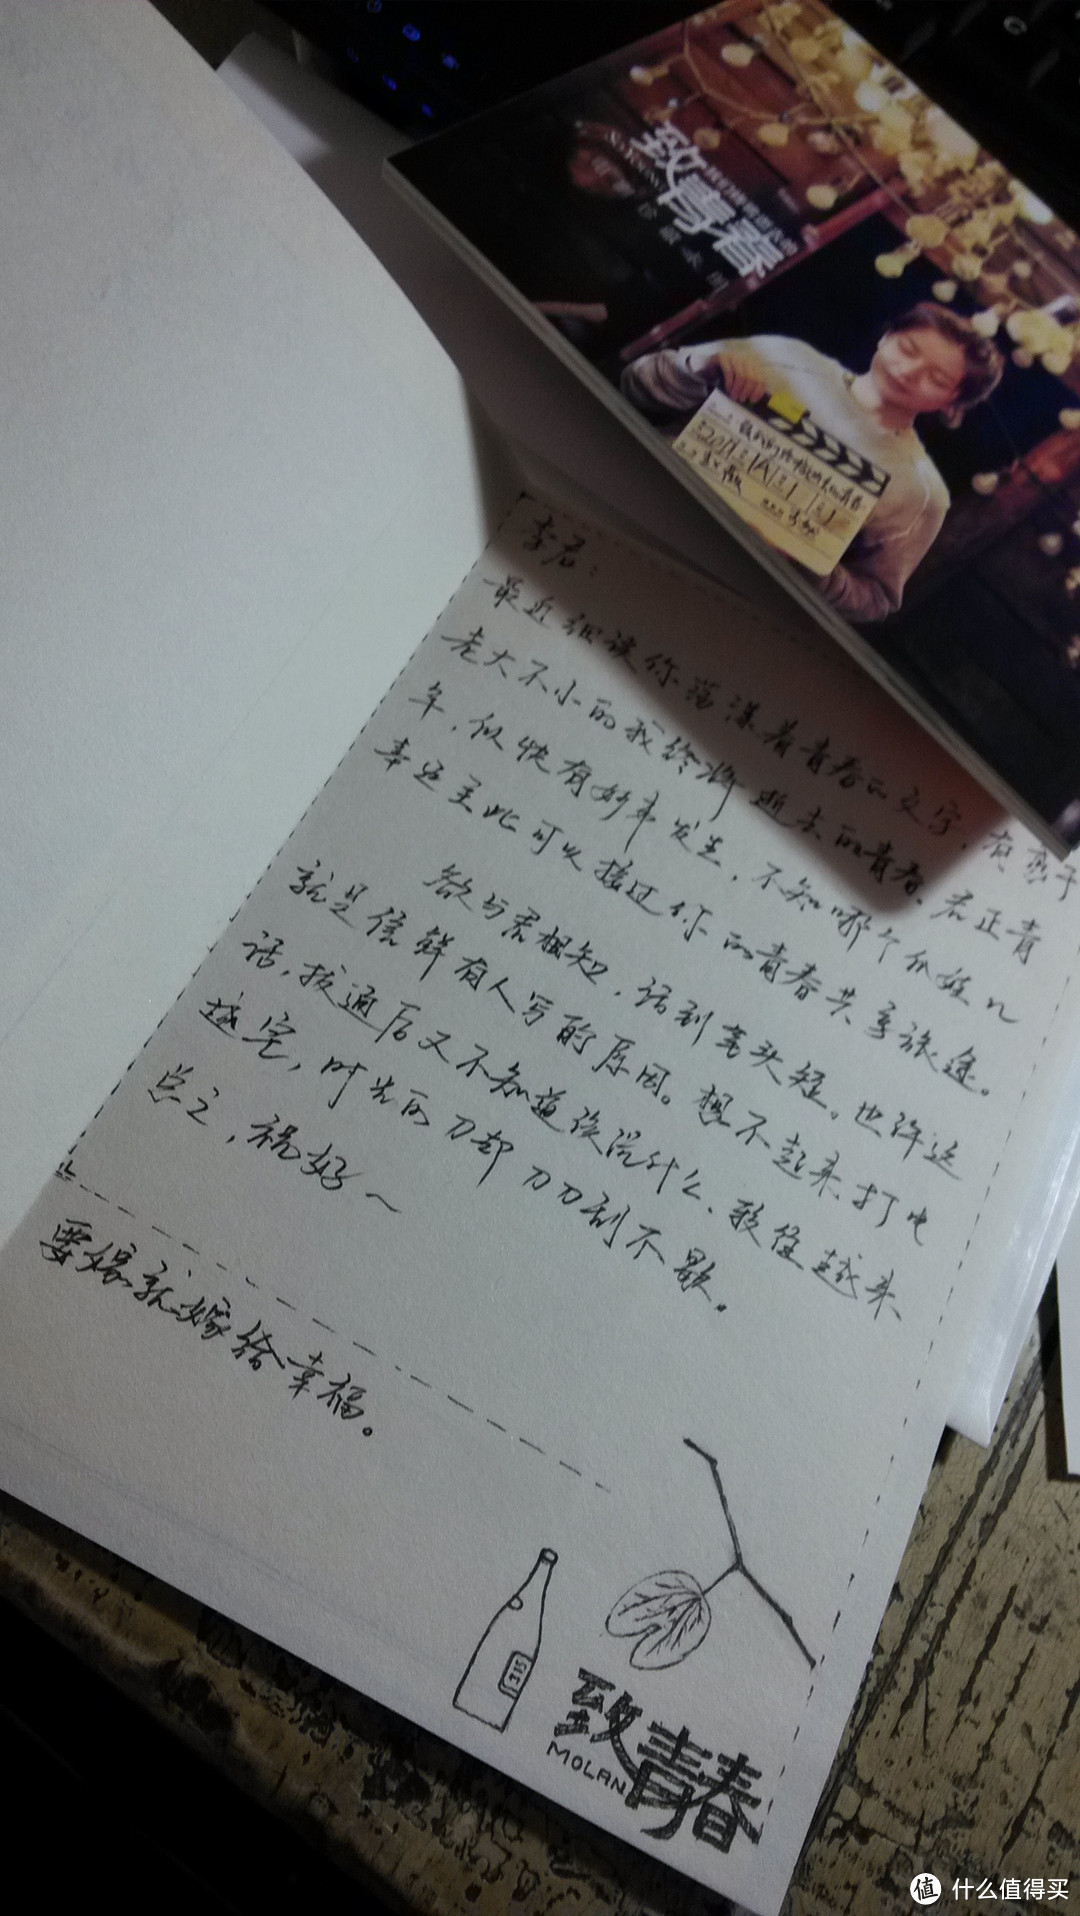 致青春
李君：
最近细读你荡漾着青春的文字，有感于
老大不小的我终将逝去的青春。君正青
年，似快有好事发生，不知哪个价姓儿
幸运至此可以接过你的青春共享旅途。
欲与君相知，话到笔头短。也许这
就是信鲜有人写的原因。想不起来打电
话，拨通后又不知道该说什么、
越完，时光的刀却刀刀刮不歇。
总之，祝好～
要嫁就嫁给幸福。
315
致青春
MOLAN
值 什么值得买